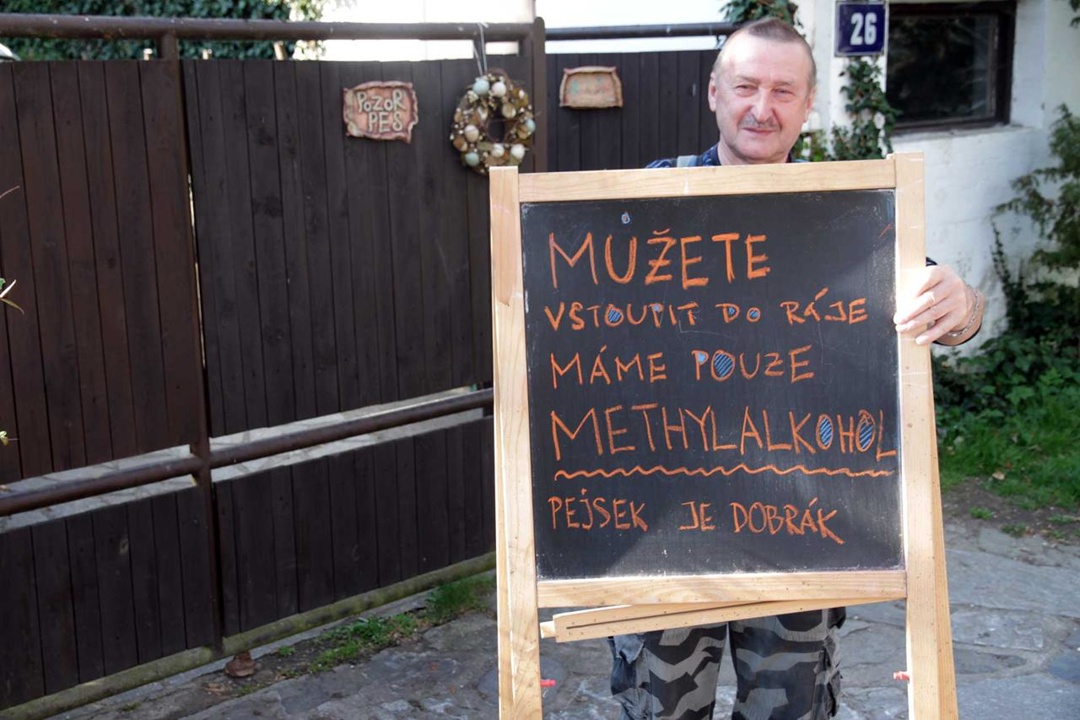 26
POZOR
PES
MŮŽETE
VSTOUPIT DO RÁJE
MÁME POUZE
METHYLALKOHOL
PEJSEK JE DOBRÁK